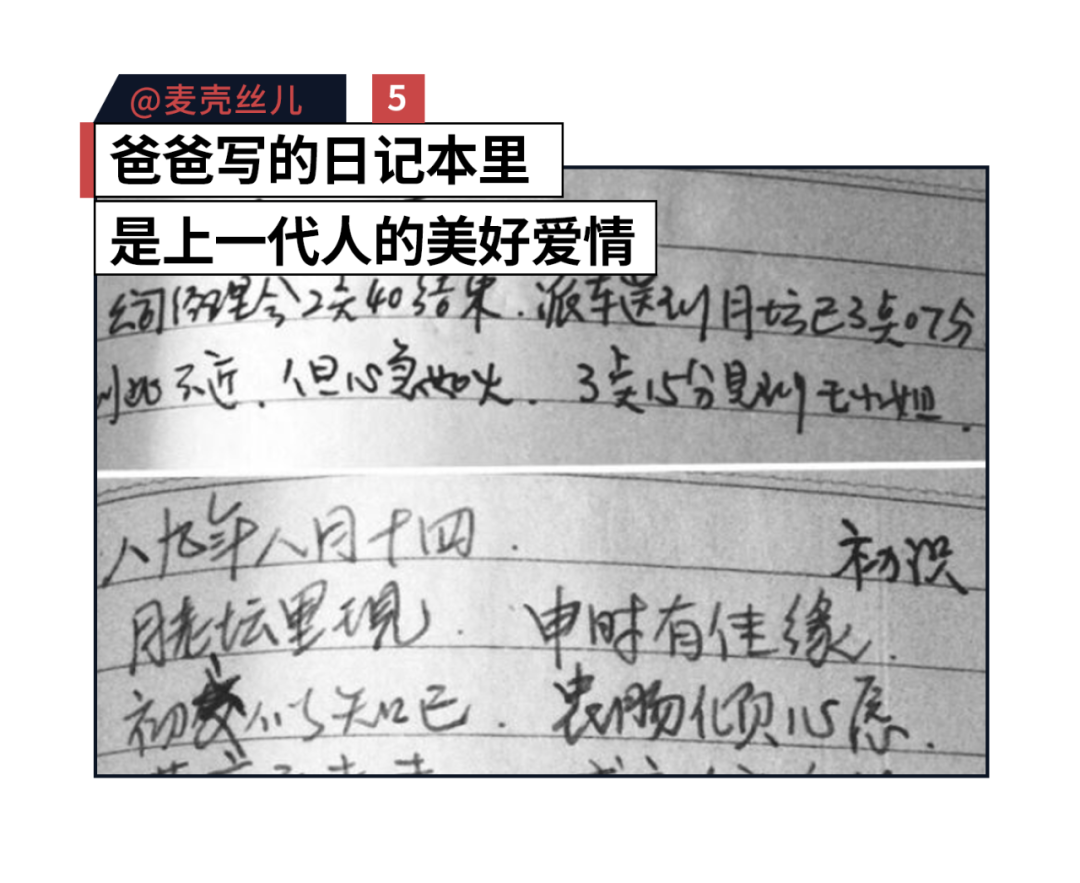 @麦壳丝儿 5
爸爸写的日记本里
是上一代人的美好爱情
经理会2点40结束.派车送到月坛已3点07分
不近.但心急如火.3点15分见到王小姐.
八九年八月十四.
初识
月老坛里现.申时有佳缘.
初以知己.衷肠倾心愿.